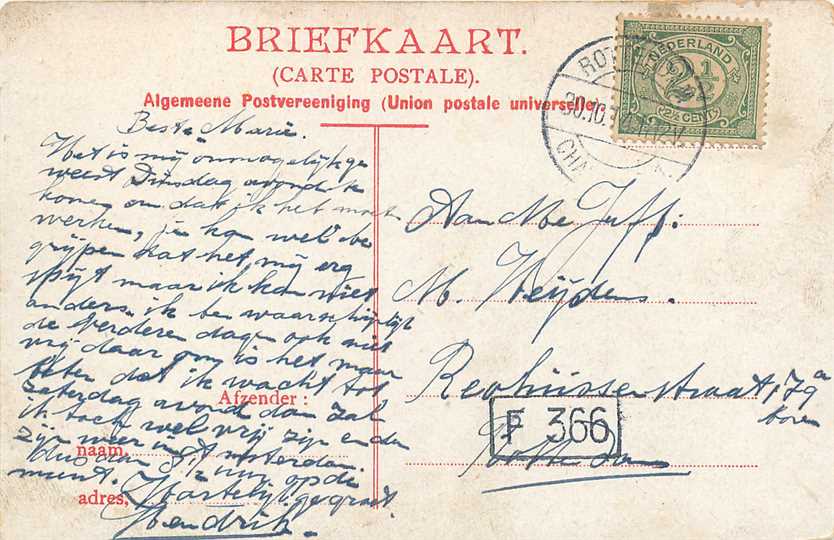 BRIEFKAART.
(CARTE POSTALE).
Algemeene Postvereeniging (Union postale universelle)
NEDERLAND
2 1/2
(2½ CENT)
ROT
30.10.
CHA
Beste Marie.
Het is mij onmogelijk ge
weest Dinsdag avond te
komen om dat ik het moet
werken, je kan wel be
grijpen dat het mij erg
spijt maar ik kan niet
anders. ik ben waarschijnlijk
de verderen dagen ook niet
vrij daar om is het maar
beter dat ik wacht tot
zaterdag avond dan zal
ik toch wel vrij zijn en dan
zijn weer in
dus dan uur op de
ment. Hartelijk gegroet.
Hendrik.
Afzender:
naam,
adres,
Aan Mej Juff:
M. Weijdens.
straat 179a
boven
P 366
Rotterdam